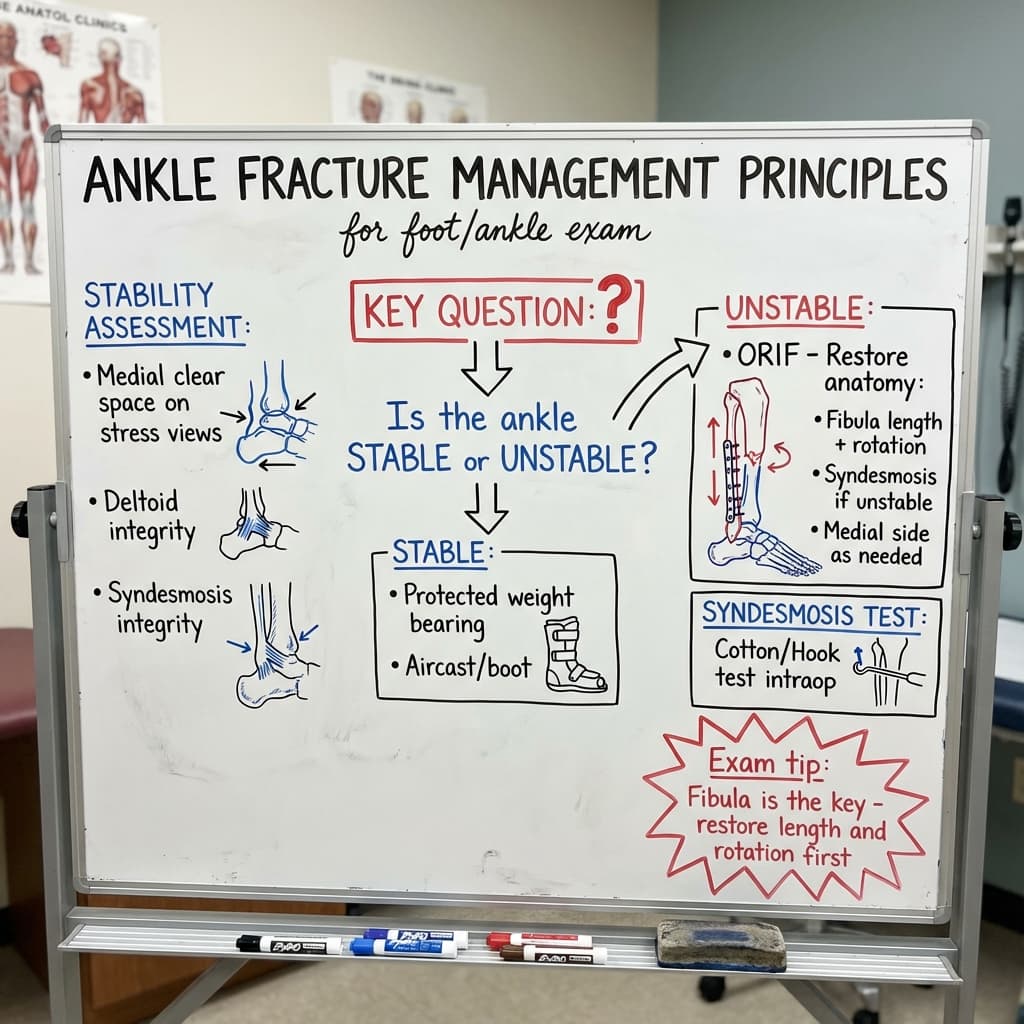 SE ANATOL CLINICS
ANKLE FRACTURE MANAGEMENT PRINCIPLES
for foot/ankle exam
STABILITY
ASSESSMENT:
• Medial clear
space on
stress views
• Deltoid
integrity
• Syndesmosis
integrity
KEY QUESTION: ?
Is the ankle
STABLE or UNSTABLE?
STABLE:
• Protected weight
bearing
• Aircast/boot
UNSTABLE:
• ORIF – Restore
anatomy:
• Fibula length
+ rotation
• Syndesmosis
if unstable
• Medial side
as needed
SYNDESMOSIS TEST:
Cotton/Hook
test intraop
Exam tip:
Fibula is the key –
restore length and
rotation first
EXPO
EXPO